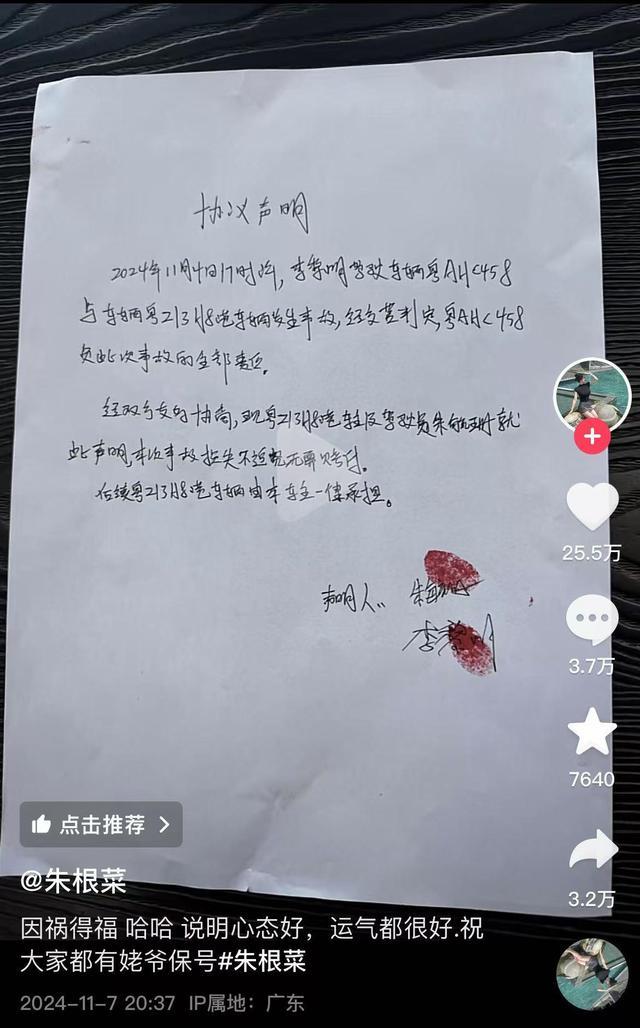 协议声明
2024年11月4日17时许，李荣明驾驶车辆粤AH<458
与车辆粤Z13H8港车辆发生事故，经交警判定，粤AH<458
负此次事故的全部责任。
经双方友好协商，现粤Z13H8港车主及驾驶员朱
就
此声明本次事故损失不追究无需赔付。
后续粤Z13H8港车辆由本车主一律承担。
声明人：朱
李 明
点击推荐 >
@朱根菜
因祸得福 哈哈 说明心态好，运气都很好.祝
大家都有姥爷保号#朱根菜
2024-11-7 20:37 IP属地：广东
25.5万
3.7万
7640
3.2万